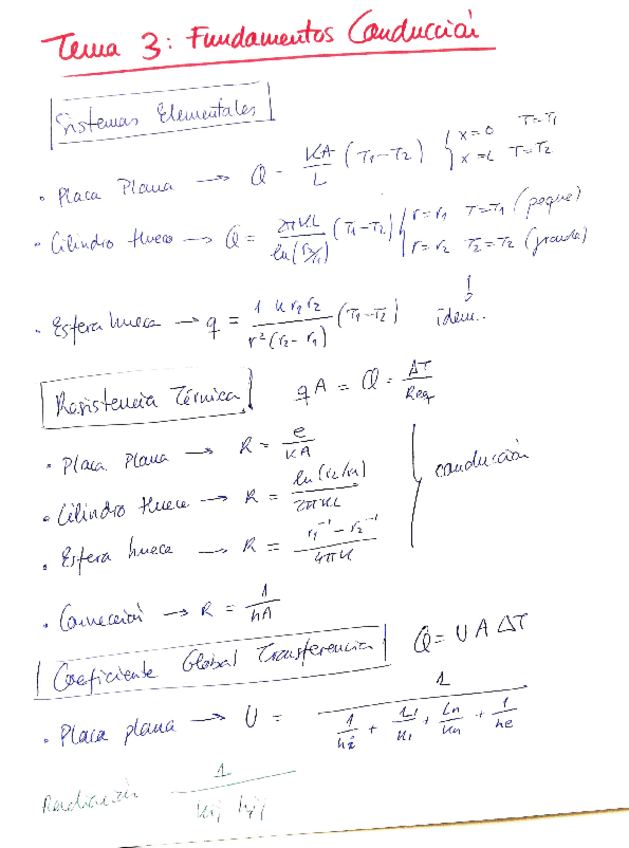 Tema 3: Fundamentos Conducción
Sistemas Elementales
• Placa Plana → Q = KA/L (T1-T2) { x=0 T=T1
x=L T=T2
• Cilindro Hueco → Q = 2πKL/ln(r2/r1) (T1-T2) { r=r1 T=T1 (peque)
r=r2 T2=T2 (grande)
• Esfera hueca → q = 1 K r2 r2/r²(r2-r1) (T1-T2) ídem..
Resistencia Térmica qA = Q = ΔT/Req
• Placa Plana → R = e/KA
• Cilindro Hueco → R = ln(r2/r1)/2πKL } conducción
• Esfera hueca → R = r1⁻¹ - r2⁻¹/4πK
• Convección → R = 1/hA
Coeficiente Global Transferencia Q = U A ΔT
• Placa plana → U = 1/(1/hi + L1/K1 + Ln/Kn + 1/he)
Radiación 1